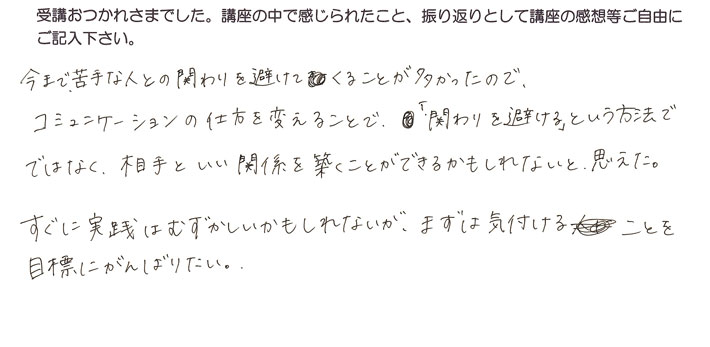 受講おつかれさまでした。講座の中で感じられたこと、振り返りとして講座の感想等ご自由に
ご記入下さい。
今まで、苦手な人との関わりを避けてくることが多かったので、
コミュニケーションの仕方を変えることで、「関わりを避ける」という方法で
ではなく、相手といい関係を築くことができるかもしれないと、思えた。
すぐに実践はむずかしいかもしれないが、まずは気付けることを
目標にがんばりたい。